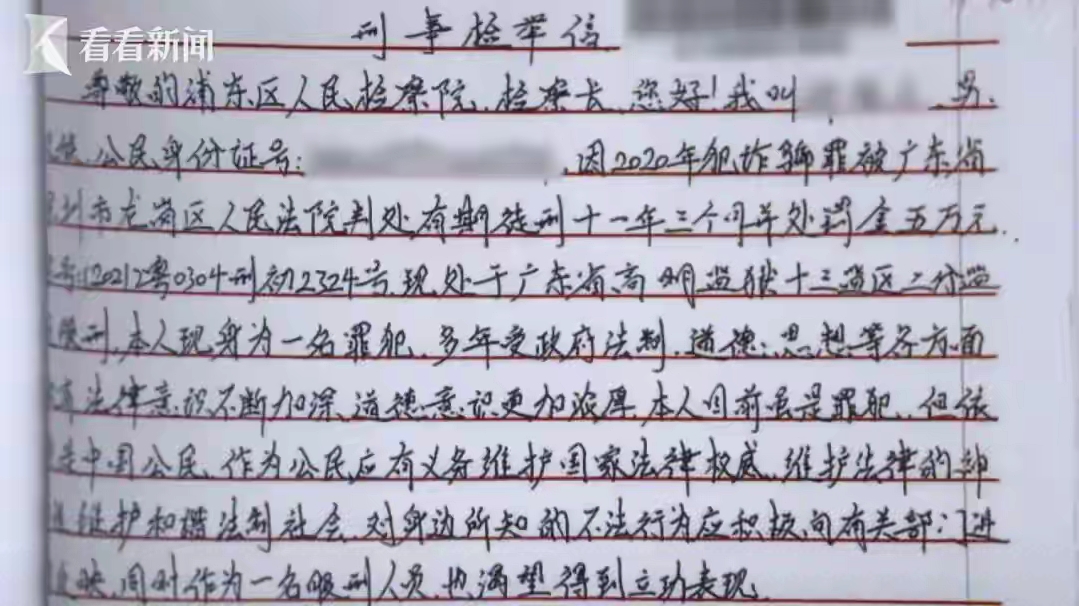 看看新闻
刑事检举信
尊敬的浦东区人民检察院、检察长、您好!我叫 、男、
公民身份证号: 、因2020年犯诈骗罪被广东省
圳市龙岗区人民法院判处有期徒刑十一年三个月并处罚金五万元.
(2021)粤0304刑初2324号,现处于广东省高明监狱十三监区二分监
刑,本人现身为一名罪犯,多年受政府法制、道德、思想等各方面
法律意识不断加深、道德意识更加浓厚,本人目前虽是罪犯、但依
是中国公民、作为公民应有义务维护国家法律权威、维护法律的神
维护和谐法制社会、对身边所知的不法行为应积极向有关部门进
反映,同时作为一名服刑人员也渴望得到立功表现.